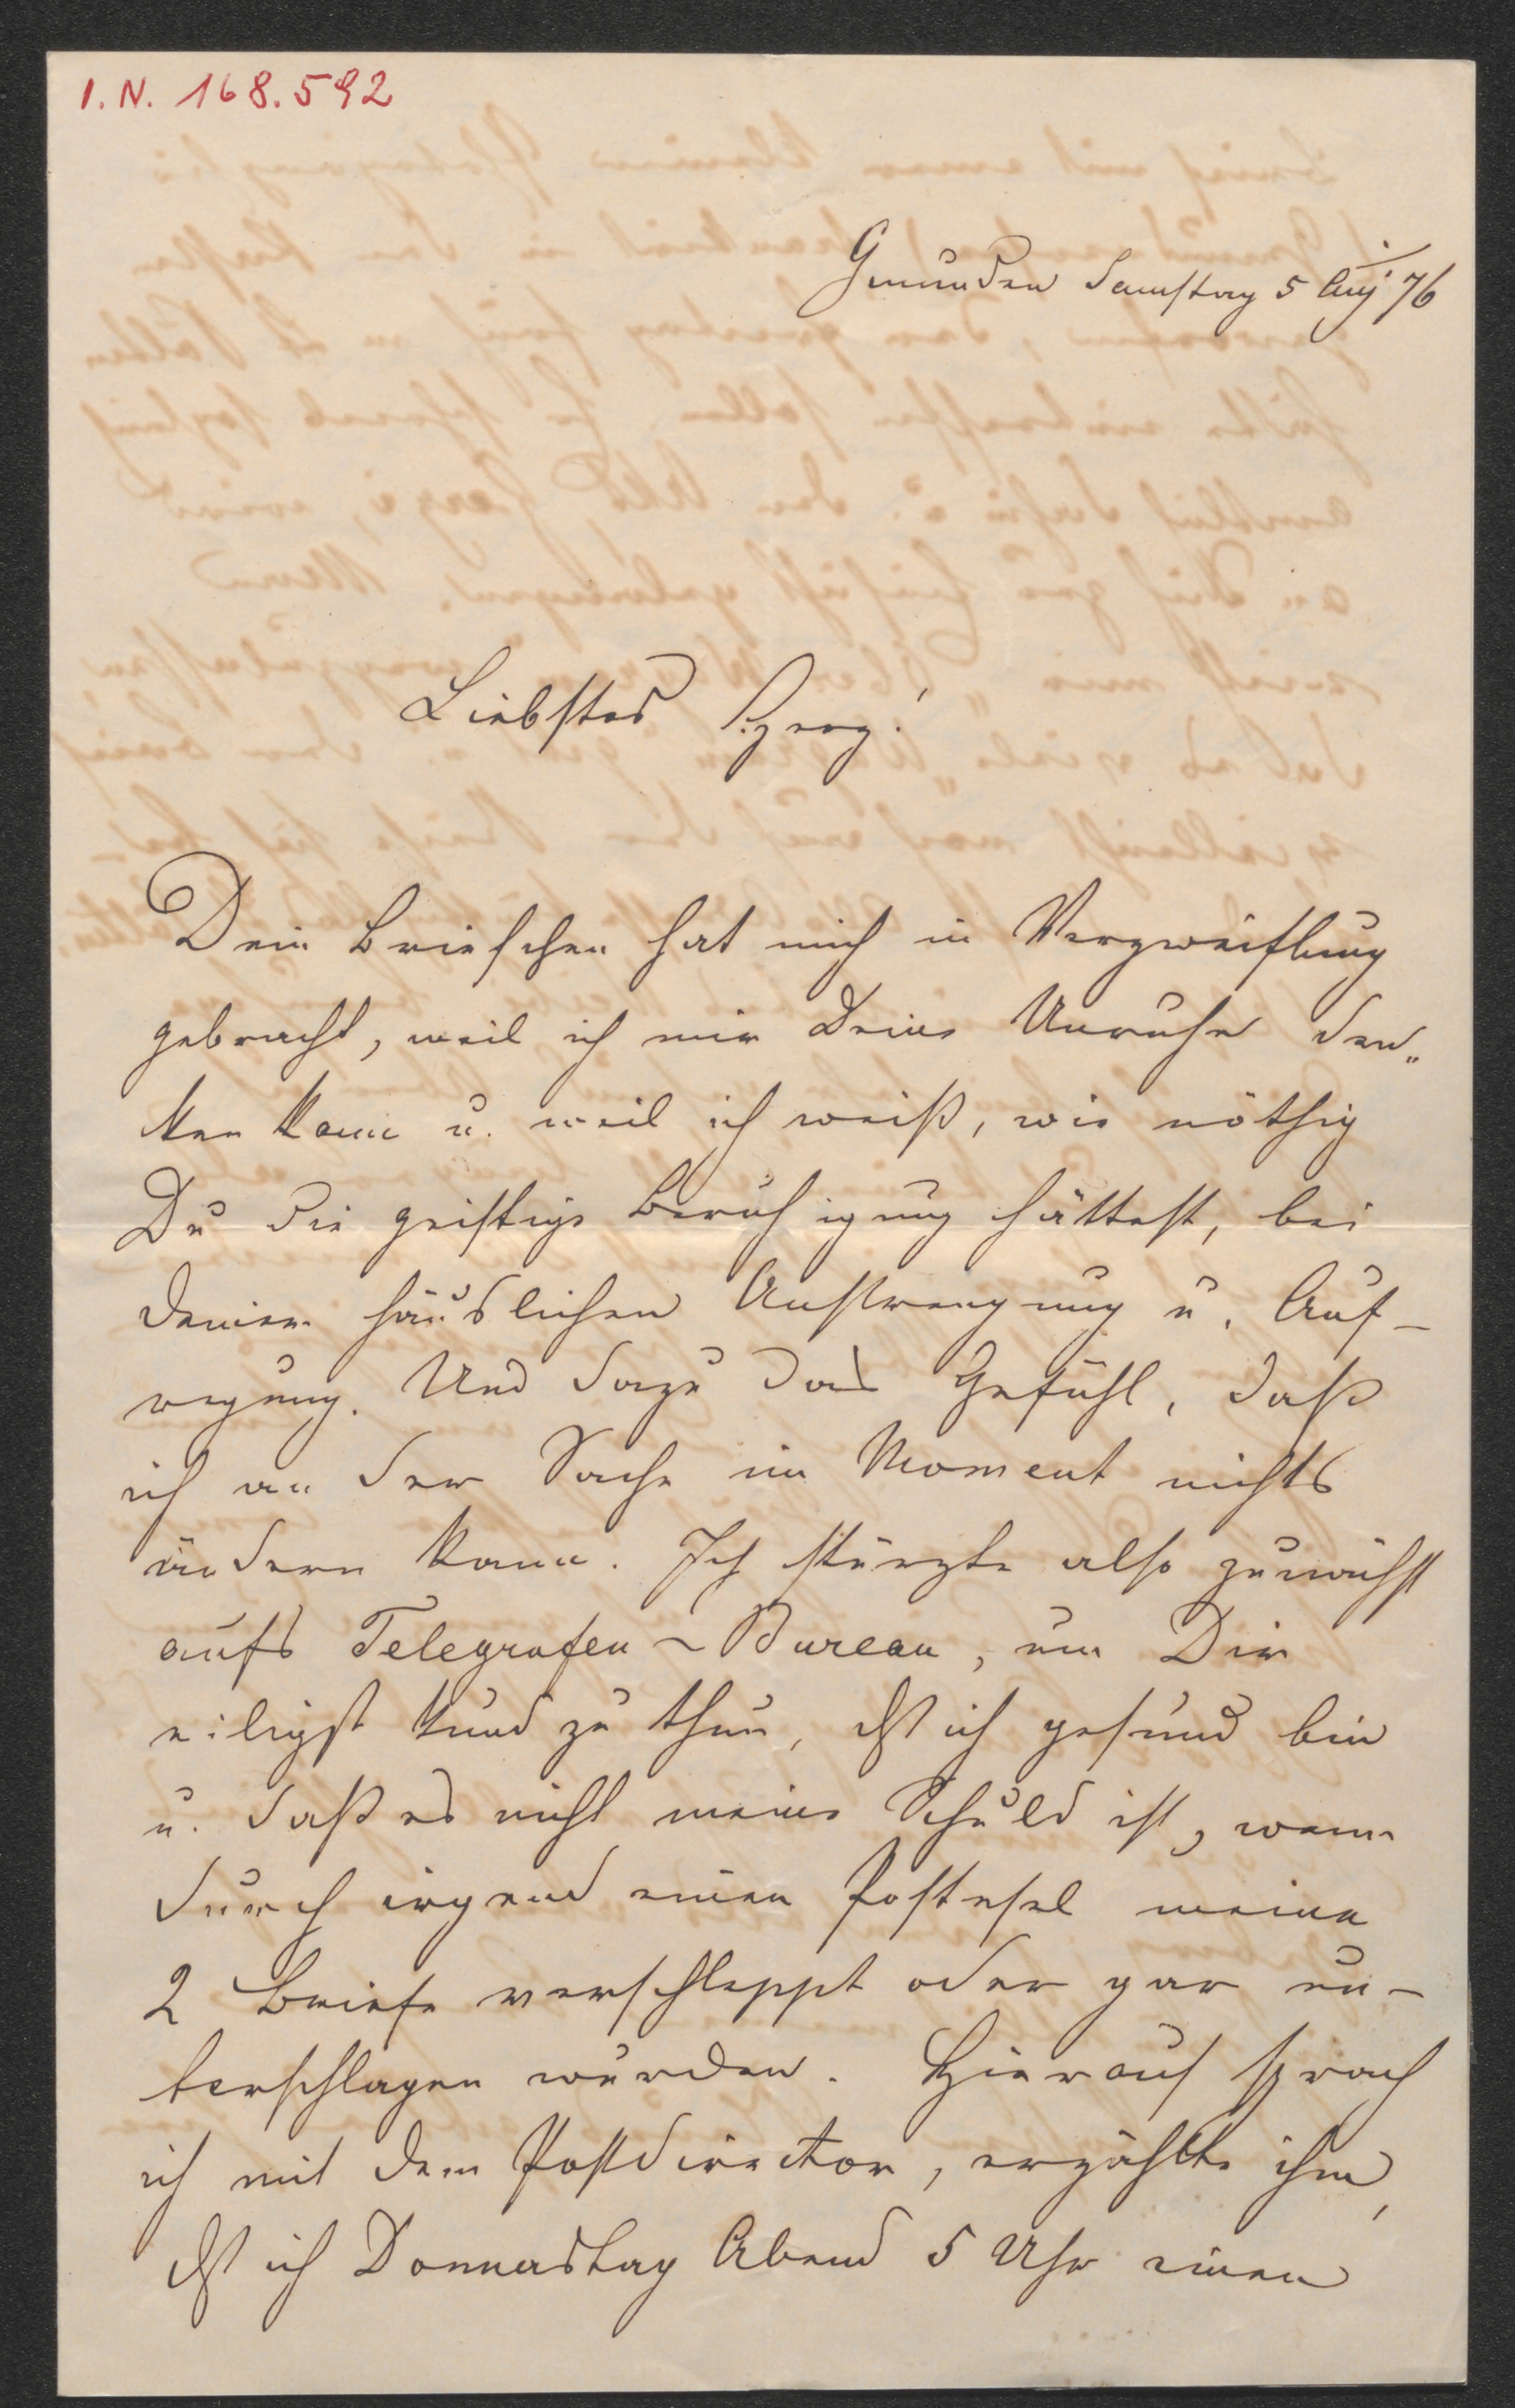 I.N. 168.592
Gmunden Samstag 5 Aug 76
Liebstes Herz!
Dein Briefchen hat mich in Verzweiflung
gebracht, weil ich mir Deine Unruhe den„
ken kann u. weil ich weiß, wie nöthig
Du die geistige Beruhigung hättest, bei
Deiner häuslichen Anstrengung u. Auf-
regung. Und dazu das Gefühl, daß
ich an der Sache im Moment nichts
ändern kann. Ich stürzte also zunächst
aufs Telegrafen-Bureau, um Dir
eiligst kund zu thun, dß ich gesund bin
u. daß es nicht meine Schuld ist, wenn
durch irgend einen Postesel meine
2 Briefe verschleppt oder gar un-
terschlagen wurden. Hierauf sprach
ich mit dem Postdirector, erzählte ihm,
dß ich Donnerstag Abend 5 Uhr einen